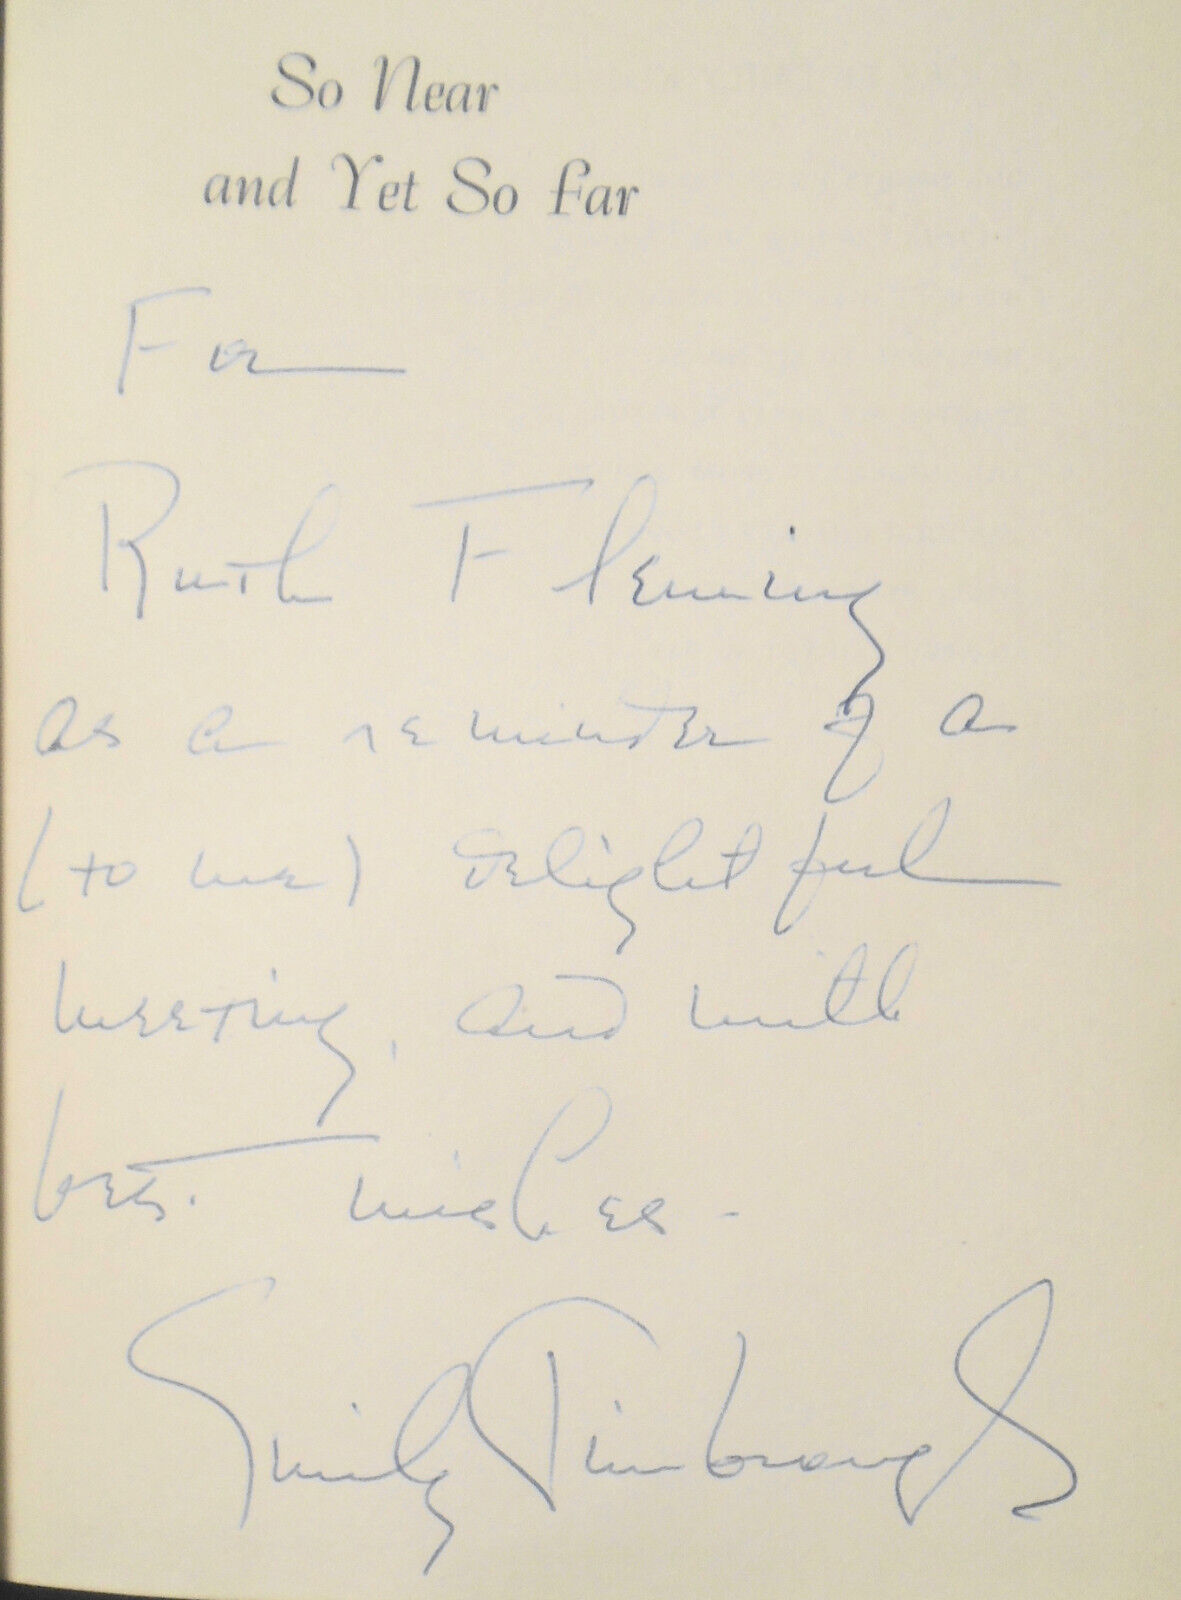 So Near
and Yet So Far
For
Ruth Fleming
as a reminder of a
(to me) delightful
meeting, and with
best wishes -
Emily Kimbrough